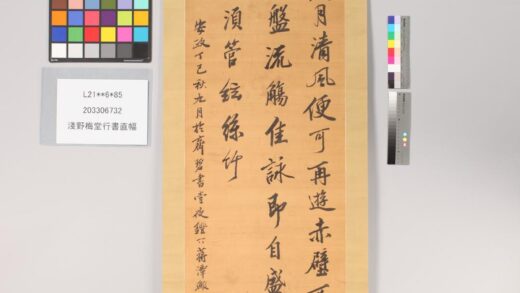 L21**6*85
203306732
淺野梅堂行書直幅
月清風便可再遊赤壁
盤流觴佳詠即自盛
須管絃絲竹
安政丁巳秋九月於齊碧書堂夜鐙下蔣潭